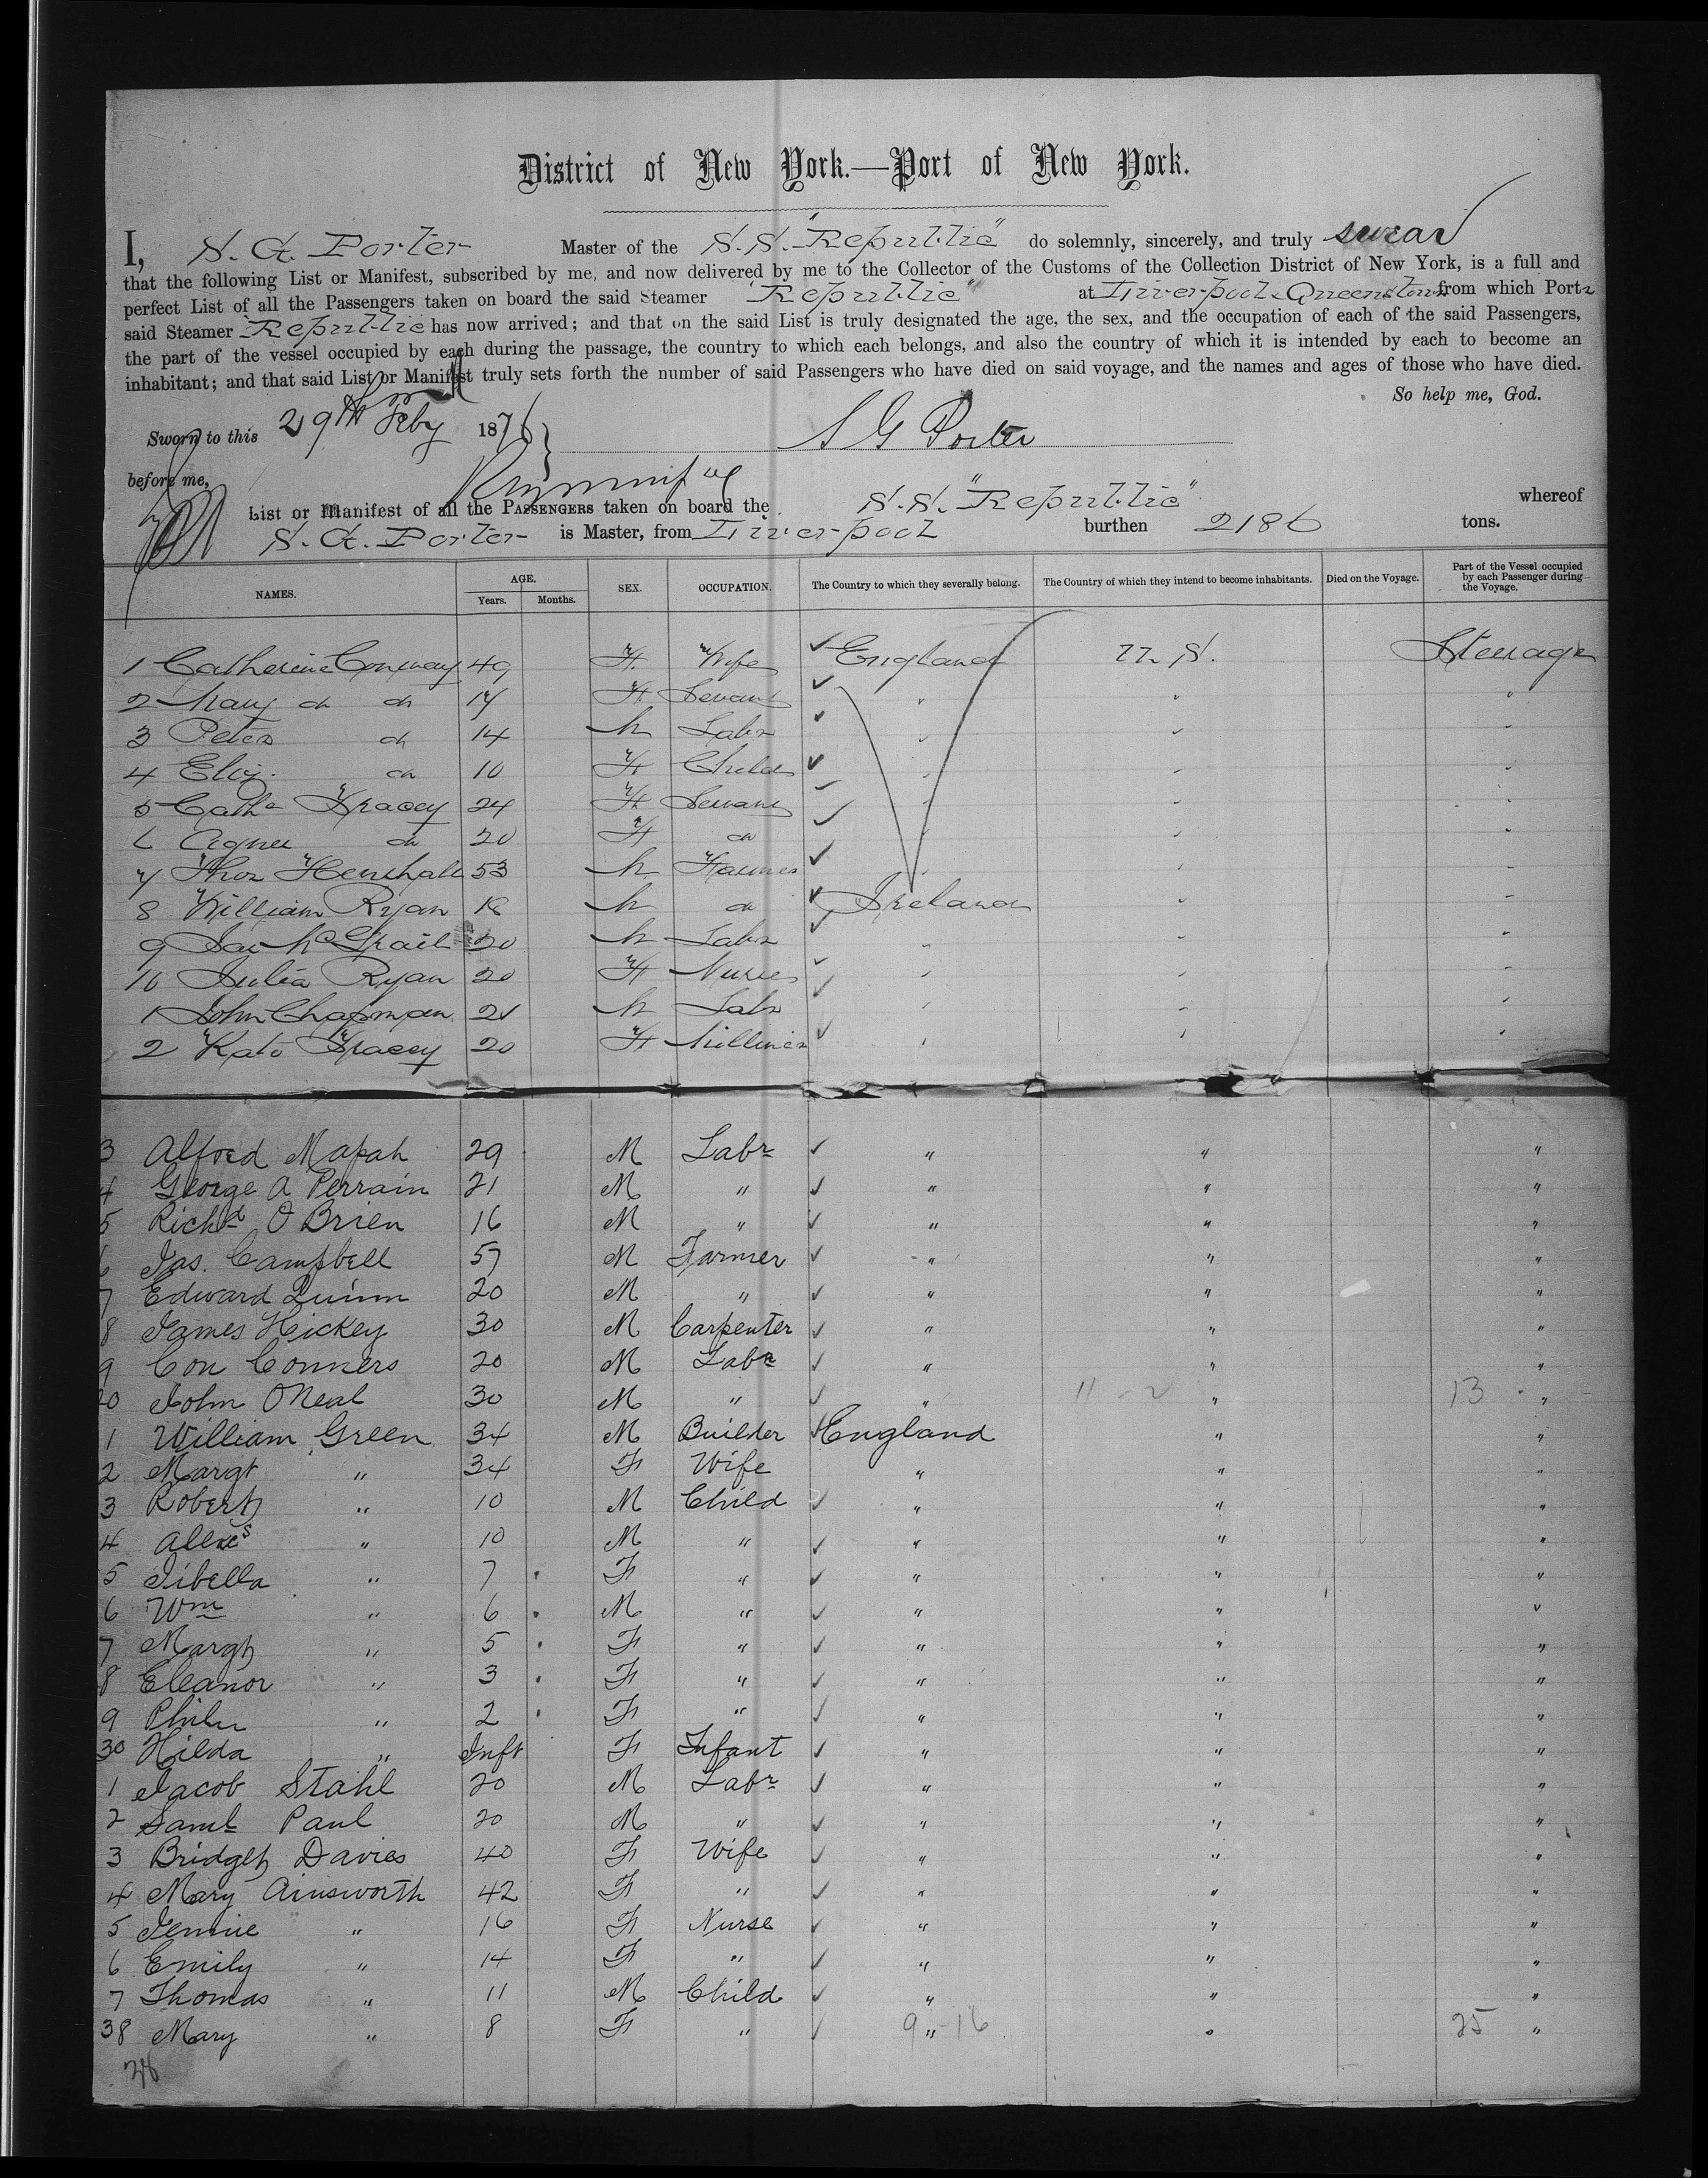 District of New York.—Port of New York.
I, S. G. Porter Master of the S.S. "Republic" do solemnly, sincerely, and truly swear
that the following List or Manifest, subscribed by me, and now delivered by me to the Collector of the Customs of the Collection District of New York, is a full and
perfect List of all the Passengers taken on board the said Steamer "Republic" at Liverpool & Queenstown from which Ports
said Steamer "Republic has now arrived; and that on the said List is truly designated the age, the sex, and the occupation of each of the said Passengers,
the part of the vessel occupied by each during the passage, the country to which each belongs, and also the country of which it is intended by each to become an
inhabitant; and that said List or Manifest truly sets forth the number of said Passengers who have died on said voyage, and the names and ages of those who have died.
So help me, God.
Sworn to this 29th Feby 1876 } S G Porter
before me,
List or Manifest of all the PASSENGERS taken on board the S.S. "Republic" whereof
S. G. Porter is Master, from Liverpool burthen 2186 tons.
NAMES. AGE. Years. Months. SEX. OCCUPATION. The Country to which they severally belong. The Country of which they intend to become inhabitants. Died on the Voyage. Part of the Vessel occupied by each Passenger during the Voyage.
1 Catherine Conway 49 F. Wife England U. S. Steerage
2 Mary do do 17 F Servant " " "
3 Peter do 14 M Labr " " "
4 Eliz. do 10 F Child " " "
5 Cathe Tracey 24 F Servant " " "
6 Agnes do 20 F do " " "
7 Thos Henshall 53 M Farmer " " "
8 William Ryan 18 M do Ireland " "
9 20 M Labr " " "
10 Julia Ryan 20 F Nurse " " "
1 John Chapman 21 M Labr " " "
2 Kate Tracey 20 F Milliner " " "
3 Alfred Mapah 29 M Labr " " "
4 George A Perrain 21 M " " " "
5 Richd O Brien 16 M " " " "
6 Jas. Campbell 57 M Farmer " " "
7 Edward Quinn 20 M " " " "
8 James Hickey 30 M Carpenter " " "
9 Con Conners 20 M Labr " " "
20 John O Neal 30 M " " 11 - 2 " 13 "
1 William Green 34 M Builder England " "
2 Margt " 34 F Wife " " "
3 Robert " 10 M Child " " "
4 " 10 M " " " "
5 Isibella " 7 F " " " "
6 Wm " 6 M " " " "
7 Margt " 5 F " " " "
8 Eleanor " 3 F " " " "
9 " 2 F " " " "
30 Hilda " Inft F Infant " " "
1 Jacob Stahl 20 M Labr " " "
2 Saml Paul 20 M " " " "
3 Bridget Davies 40 F Wife " " "
4 Mary Ainsworth 42 F " " " "
5 Jennie " 16 F Nurse " " "
6 Emily " 14 F " " " "
7 Thomas " 11 M Child " " "
38 Mary " 8 F " 9 " 16 " 25 "